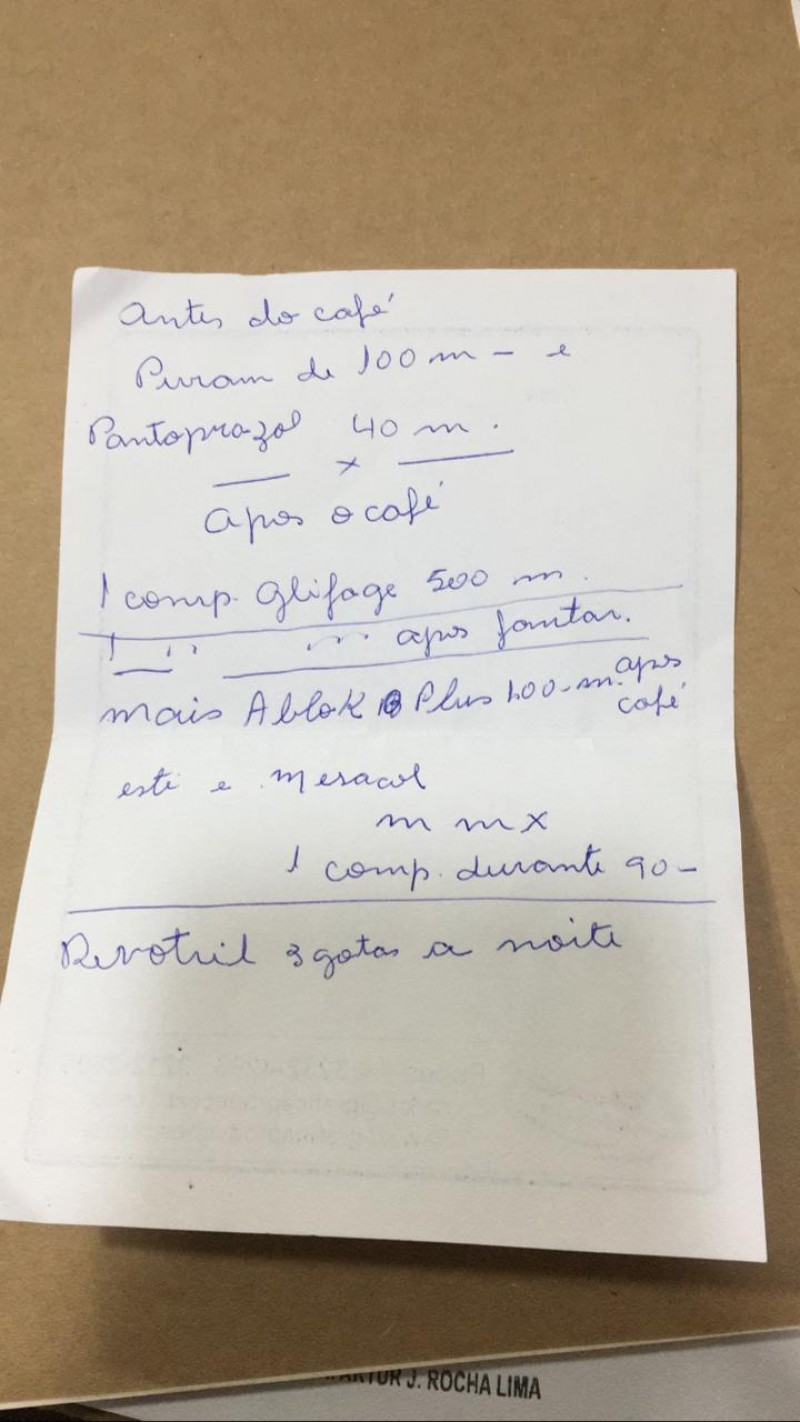 Antes do café
Puram de 100 m - e
Pantoprazol 40 m.
— x —
Apos o café
1 comp. Glifage 500 m.
1 '' '' apos jantar.
mais Ablok Plus 100-m. apos
café
este e Mesacol
m m x
1 comp. durante 90-
Revotril 3 gotas a noite
J. ROCHA LIMA